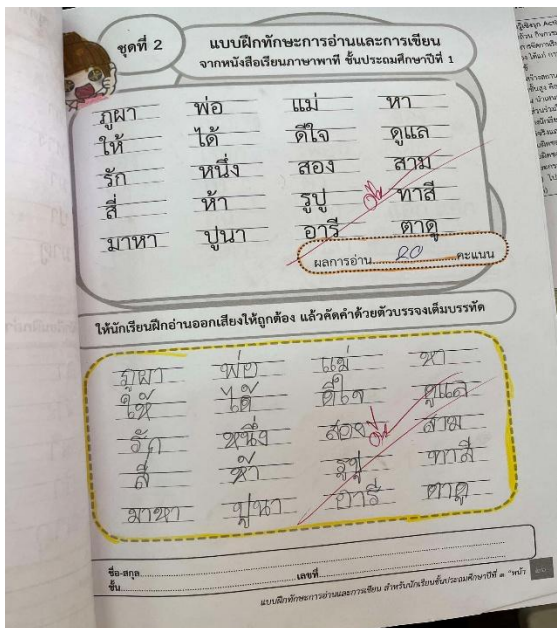 ชุดที่ 2
แบบฝึกทักษะการอ่านและการเขียน
จากหนังสือเรียนภาษาพาที ชั้นประถมศึกษาปีที่ 1
ภูผา พ่อ แม่ หา
ให้ ได้ ดีใจ ดูแล
รัก หนึ่ง สอง สาม
สี่ ห้า รูปู ทาสี
มาหา ปูนา อารี ตาดู
ผลการอ่าน 20 คะแนน
ให้นักเรียนฝึกอ่านออกเสียงให้ถูกต้อง แล้วคัดคำด้วยตัวบรรจงเต็มบรรทัด
ภูผา พ่อ แม่ หา
ให้ ได้ ดีใจ ดูแล
รัก หนึ่ง สอง สาม
สี่ ห้า รูปู ทาสี
มาหา ปูนา อารี ตาดู
ชื่อ-สกุล
ชั้น เลขที่
แบบฝึกทักษะการอ่านและการเขียน สำหรับนักเรียนชั้นประถมศึกษาปีที่ ๑ หน้า